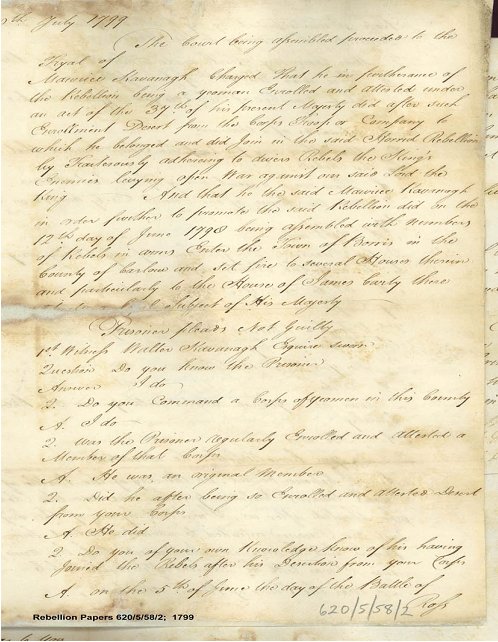 th July 1799
The Court being assembled proceeded to the
Tryal of
Maurice Kavanagh Charged That he in furtherance of
the Rebellion being a yeoman Enrolled and attested under
an act of the 37th of his present Majesty did after such
Enrollment Desert from the Corps Troop or Company to
which he belonged and did Join in the said Horrid Rebellion
by Traiterously adhering to divers Rebels the King's
Enemies levying open War against our said Lord the
King And that he the said Maurice Kavanagh
in order further to promote the said Rebellion did on the
12th day of June 1798 being assembled with numbers
of Rebels in arms Enter the Town of Borris in the
County of Carlow and set fire to several Houses therein
and particularly to the House of James Carty there
Subject of His Majesty
Prisoner pleads Not Guilty
1st Witness Walter Kavanagh Esquire sworn
Question Do you know the Prisoner
Answer I do
2. Do you Command a Corps of yeomen in this County
A. I do
2 Was the Prisoner regularly Enrolled and attested a
Member of that Corps
A. He was an original Member
2. Did he after being so Enrolled and attested Desert
from your Corps
A. He did
2 Do you of your own Knowledge know of his having
Joined the Rebels after his Desertion from your Corps
A on the 5th of June the day of the Battle of
Ross
620/5/58/2
Rebellion Papers 620/5/58/2; 1799